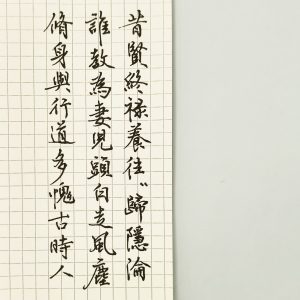 昔賢終祿養往〻歸隱淪
誰教為妻兒頭白走風塵
脩身與行道多愧古時人